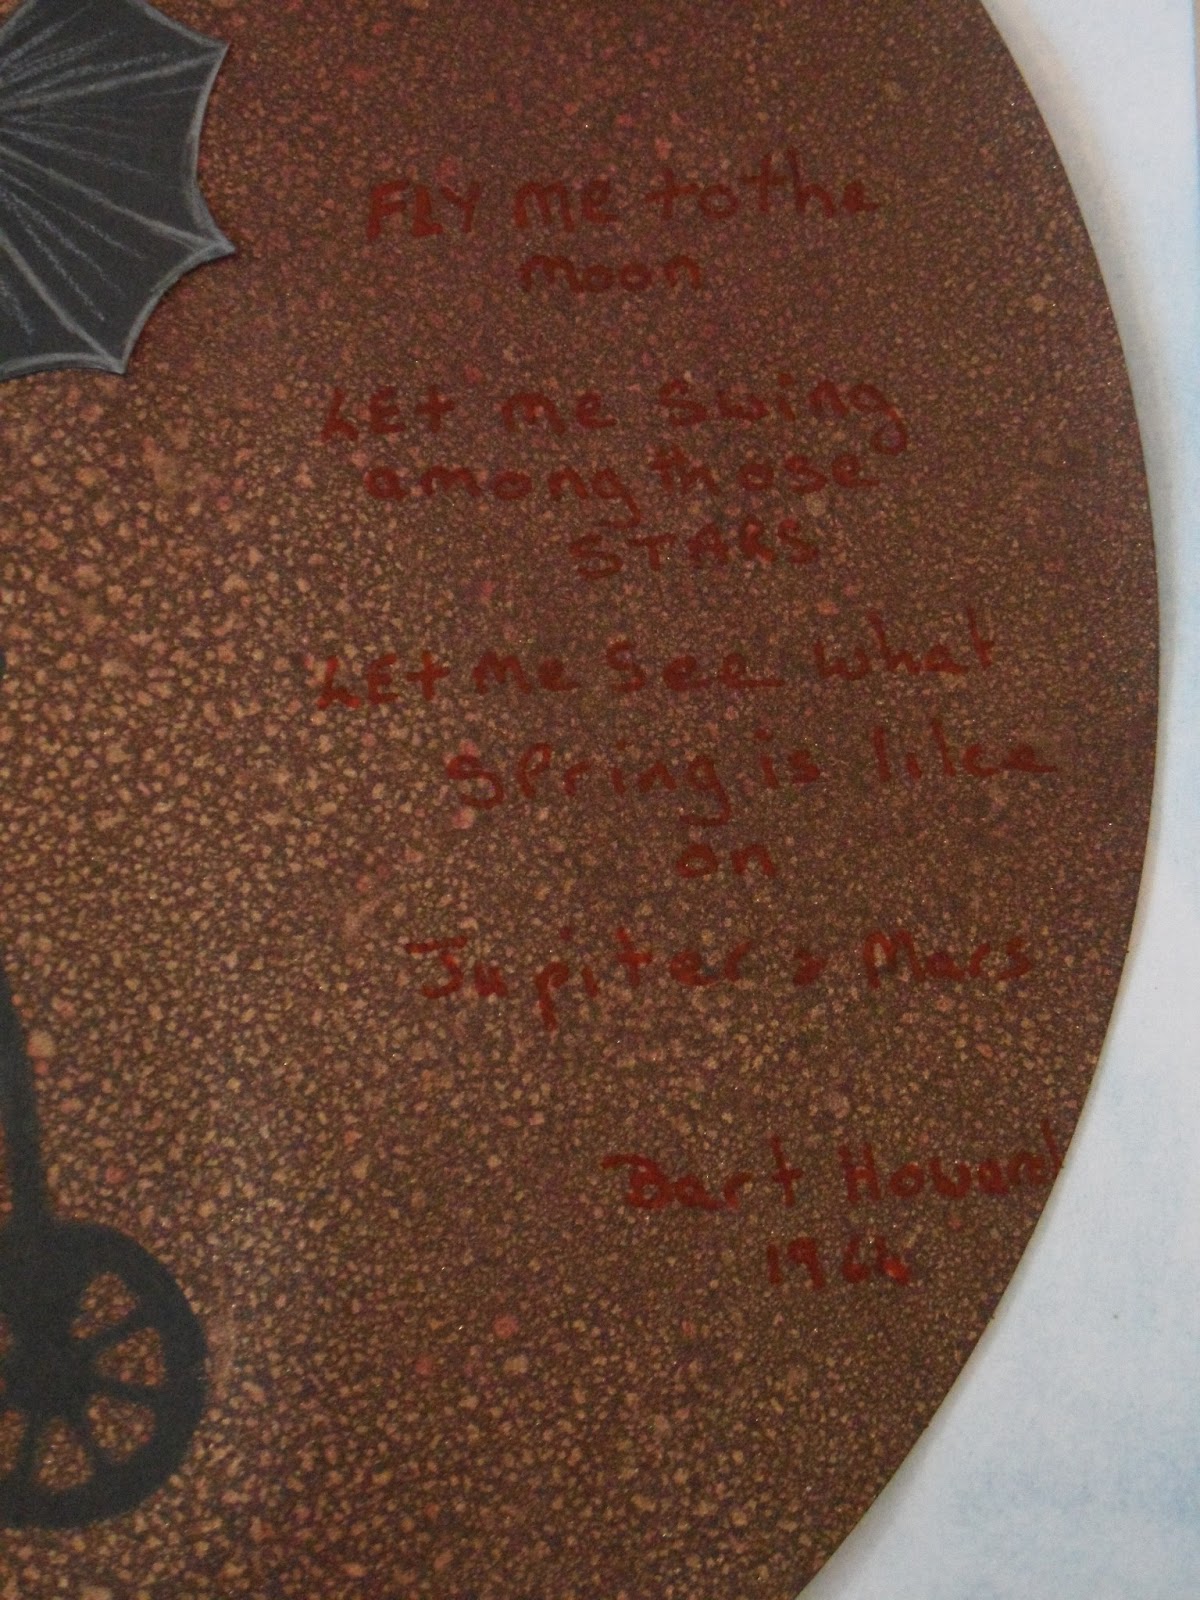 FLY me to the
moon
LEt me Swing
among those
STARS
LEt me See what
Spring is like
on
Jupiter & Mars
Bart Howard